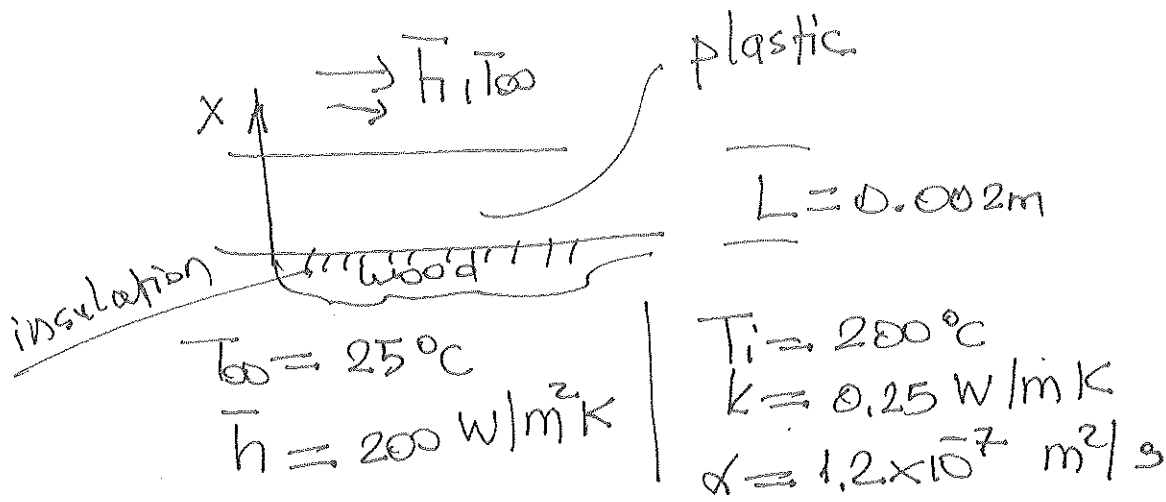 plastic
h̄, T∞
X
L = 0.002m
wood
insulation
T∞ = 25°C
h̄ = 200 W/m²K
Ti = 200°C
k = 0.25 W/mK
α = 1.2×10⁻⁷ m²/s